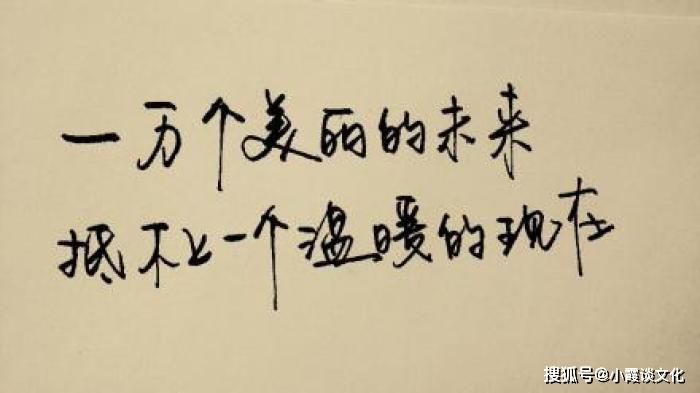 一万个美丽的未来
抵不上一个温暖的现在
搜狐号@小霞谈文化